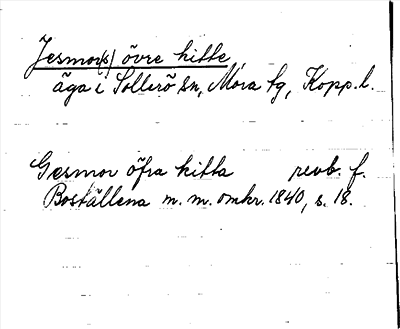 Jesmor(s) övre hitte,
äga i Sollerö sn, Mora tg, Kopp. l.
Gesmor öfra hitta revb. f.
Boställena m. m. omkr. 1840, s. 18.